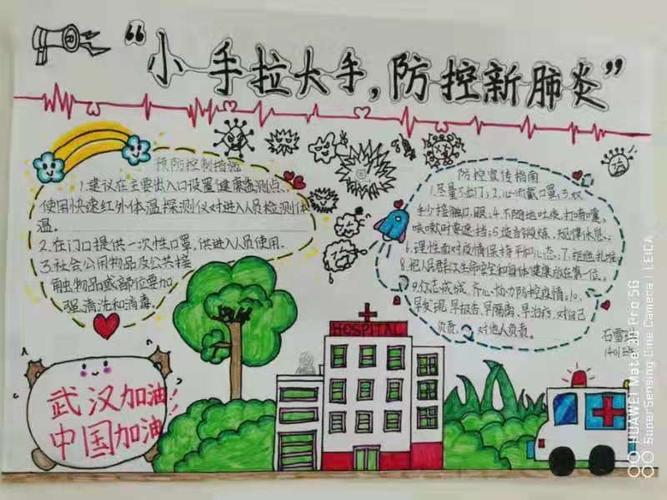 “小手拉大手，防控新肺炎”
预防控制措施
1.建议在主要出入口设置健康监测点、
使用快速红外体温探测仪对进入人员检测体
温。
2.在门口提供一次性口罩，供进入人员使用。
3.社会公用物品及公共接
触物品或部位要加
强清洗和消毒。
防控宣传指南
1.尽量少出门；2.心出戴口罩；3.双
手少接触口、眼。4.不随地吐痰，打喷嚏、
咳嗽时要遮挡；5.适当锻炼，规律休息。
6.理性面对疫情保持平和心态。7.拒绝扎堆
8.把人民群众生命安全和身体健康放在第一位。
9.众志成城，齐心协力防控疫情。10.
早发现，早报告，早隔离，早治疗，对自己
负责，对他人负责。
石雪
1401班
武汉加油！
中国加油！
HOSPITAL
HUAWEI Mate 30 Pro 5G
SuperSensing Cine Camera | LEICA